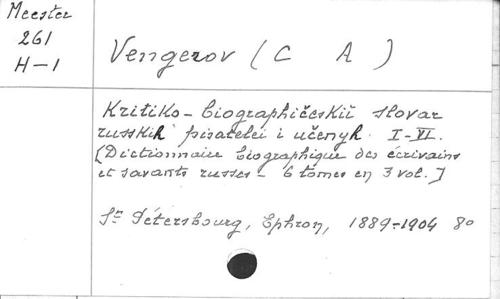 Meester
261
H-1
Vengerov (C A)
Kritiko-biographičeskiĭ slovar
russkik pisatelei i učenyk I-VI.
[Dictionnaire biographique des écrivains
et savants russes - 6 tomes en 3 vol.]
St Pétersbourg, Ephron, 1889-1904 8o